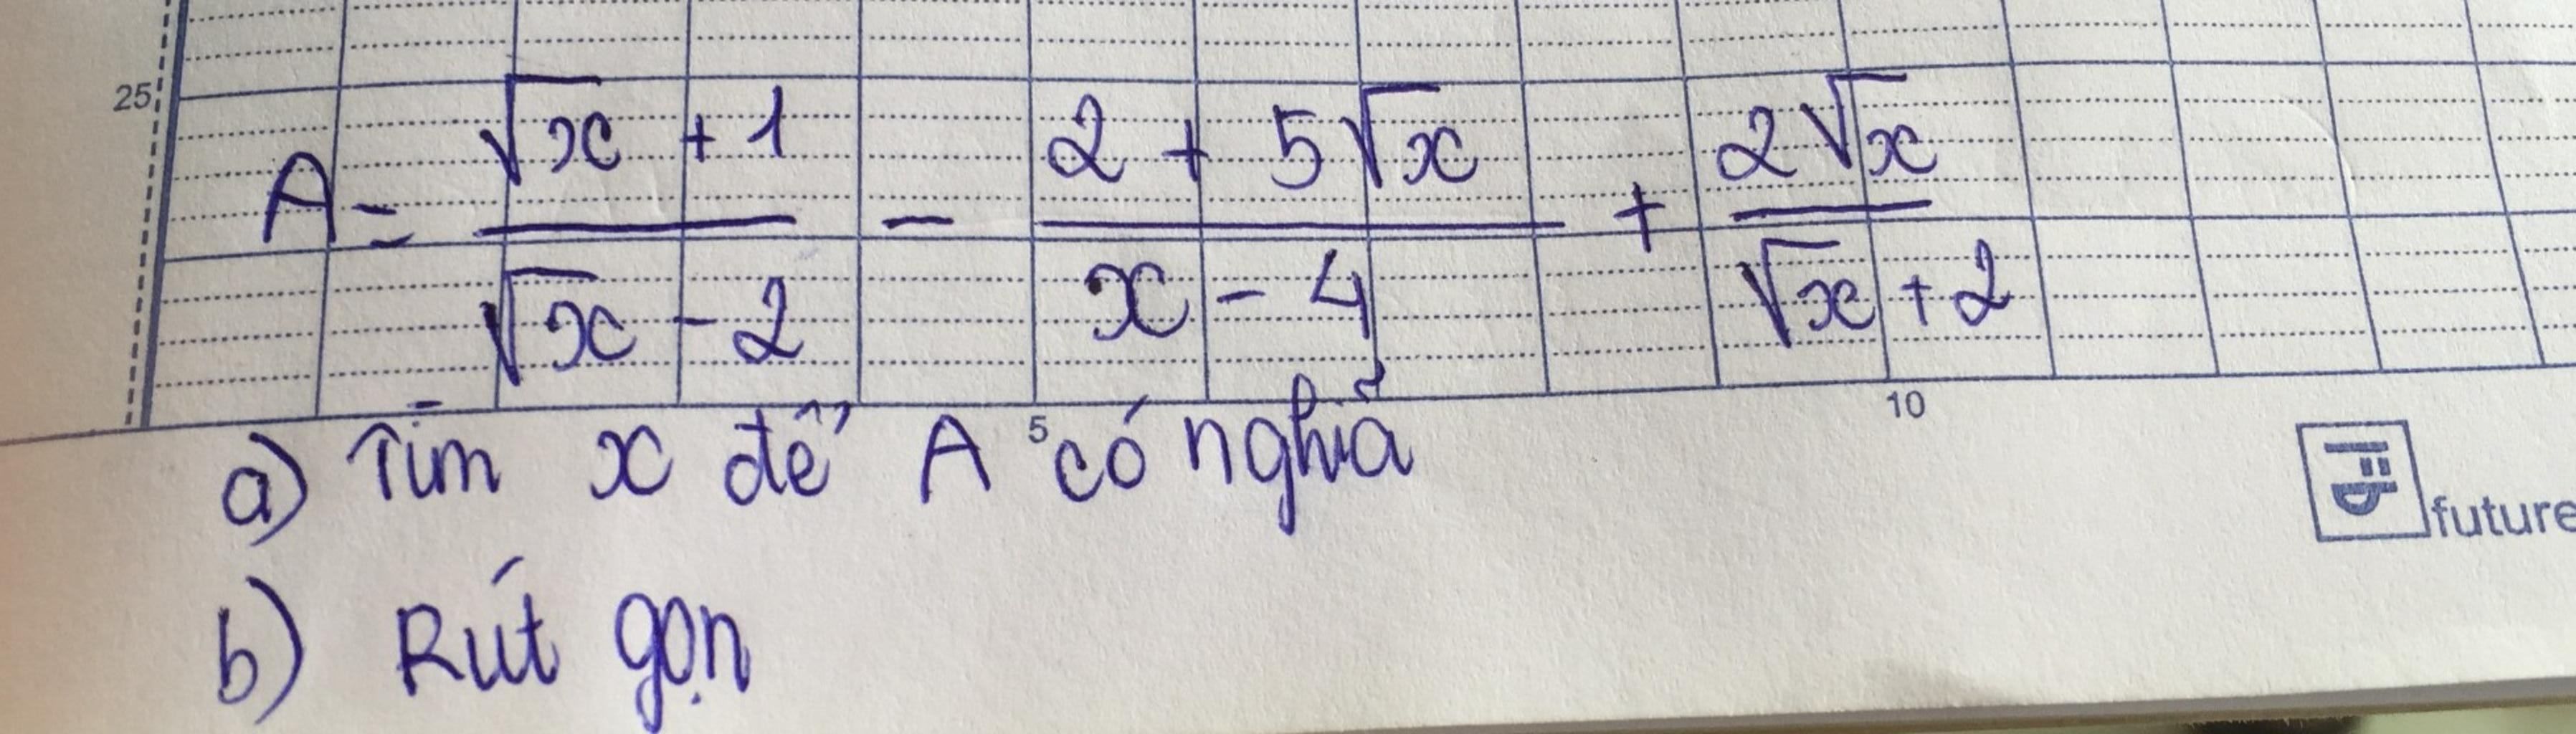 25
A = \frac{\sqrt{x} + 1}{\sqrt{x} - 2} - \frac{2 + 5\sqrt{x}}{x - 4} + \frac{2\sqrt{x}}{\sqrt{x} + 2}
5 10
a) Tìm x để A có nghĩa
future
b) Rút gọn